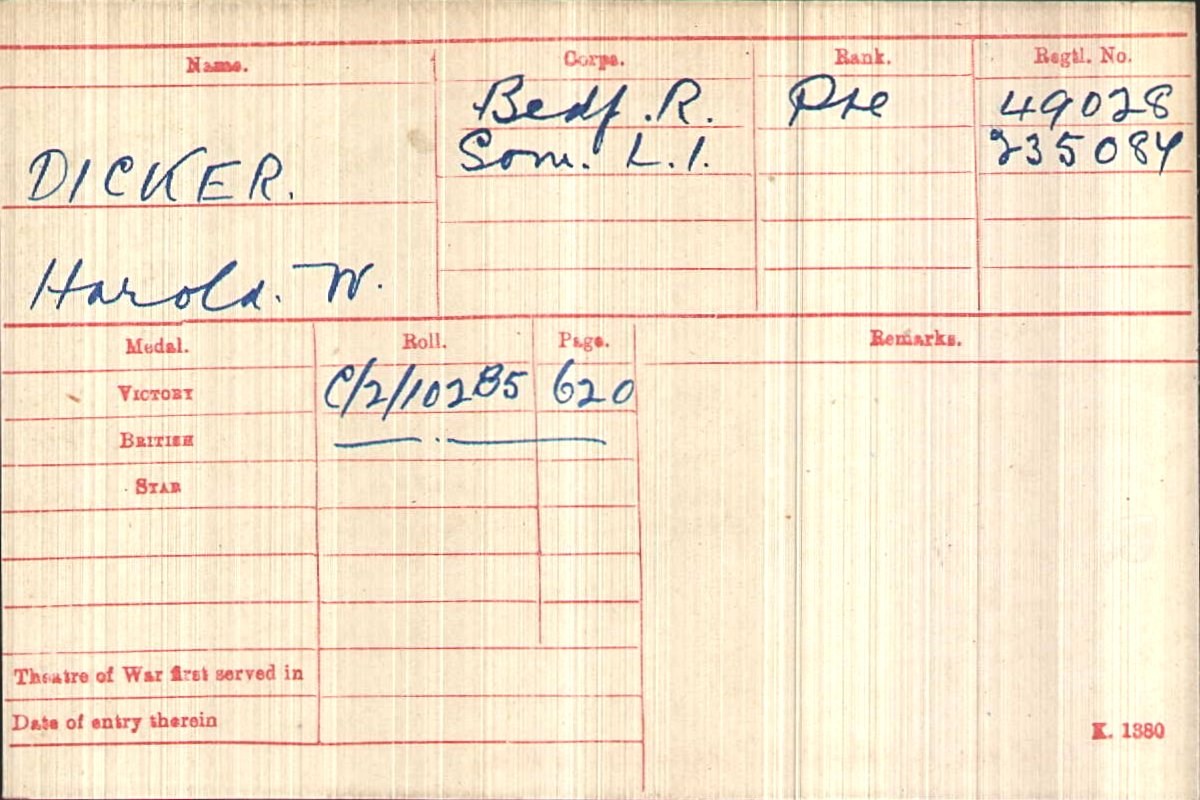 Name. Corps. Rank. Regtl. No.
Bedf. R. Pte 49028
Som. L.I. 235084
DICKER.
Harold. W.
Medal. Roll. Page. Remarks.
VICTORY C/2/102B5 620
BRITISH — . —
STAR
Theatre of War first served in
Date of entry therein
K. 1380